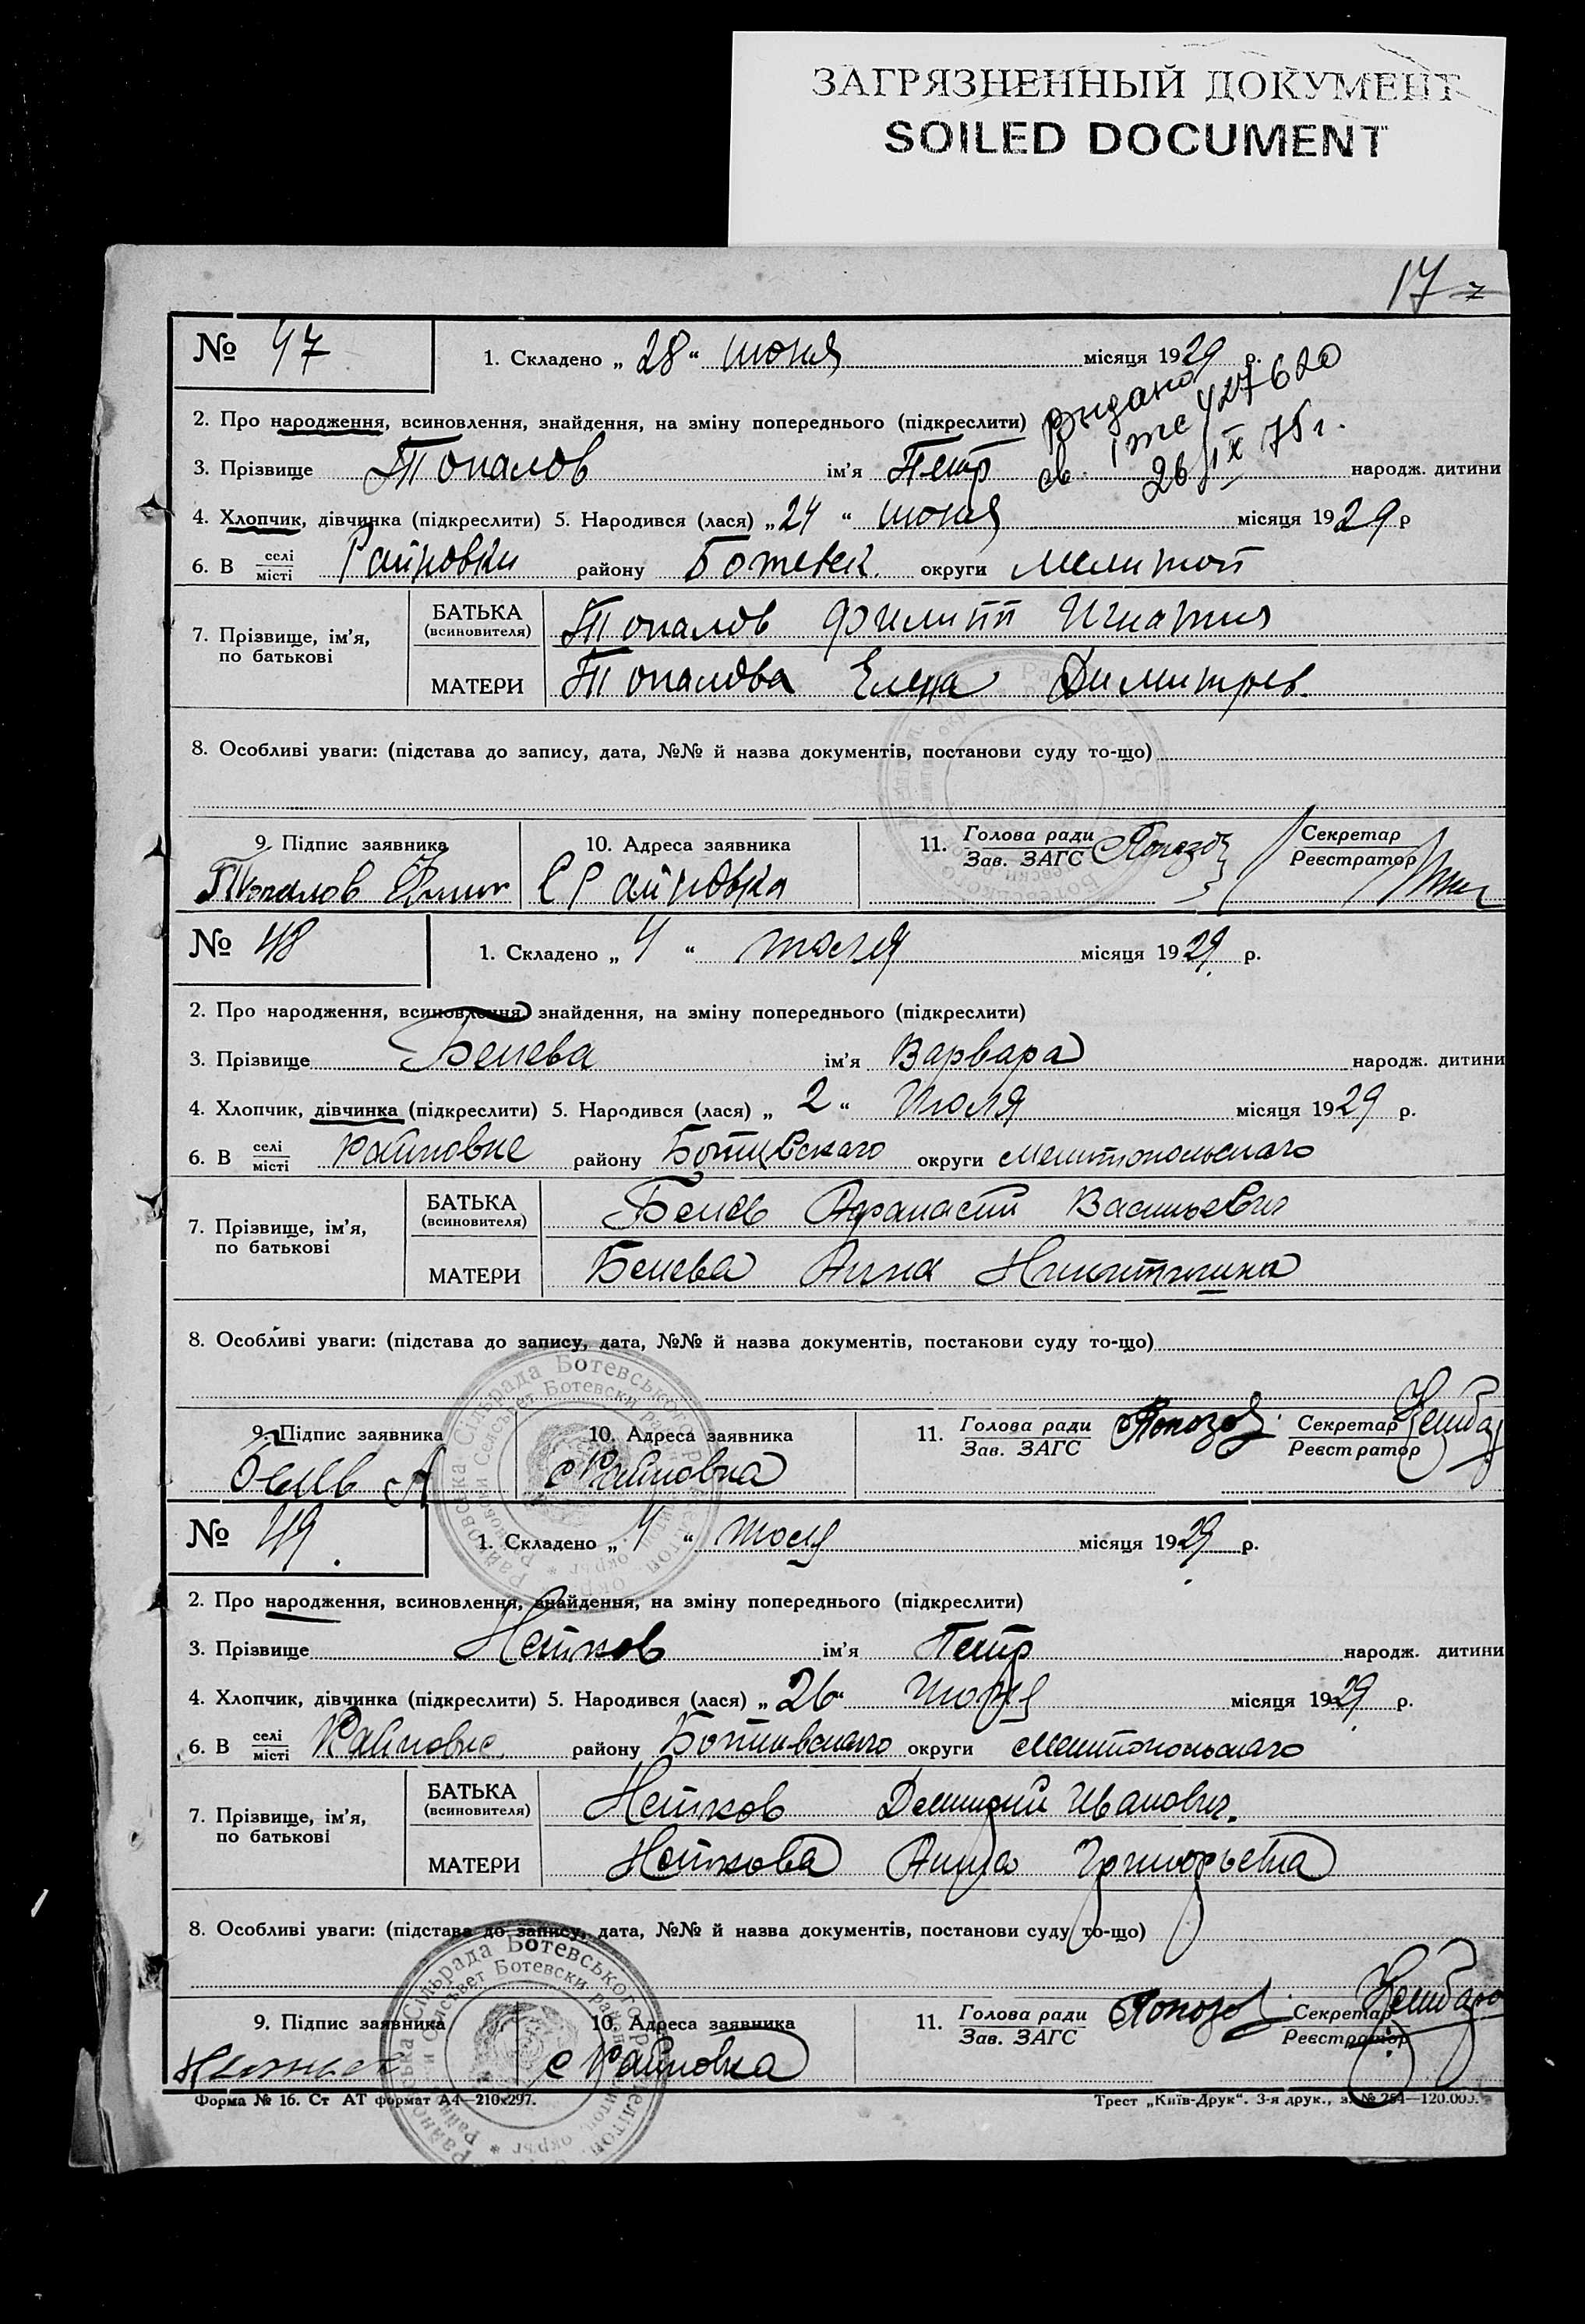 ЗАГРЯЗНЕННЫЙ ДОКУМЕНТ
SOILED DOCUMENT
17
№ 47 1. Складено „ 28 “ июня місяця 1929 р.
2. Про народження, всиновлення, знайдення, на зміну попереднього (підкреслити) Видано
427620
3. Прізвище Топалов ім'я Петр св. 26/IX 75 г. народж. дитини
4. Хлопчик, дівчинка (підкреслити) 5. Народився (лася) „ 24 “ июня місяця 1929 р
6. В селі/місті Райновки району Ботевск. округи Мелитоп
7. Прізвище, ім'я, по батькові
БАТЬКА (всиновителя) Топалов Филипп Игнатия
МАТЕРИ Топалова Елена Димитрев.
8. Особливі уваги: (підстава до запису, дата, №№ й назва документів, постанови суду то-що)
9. Підпис заявника 10. Адреса заявника 11. Голова ради/Зав. ЗАГС Секретар/Реєстратор
Топалов Филип С Райновка
№ 48 1. Складено „ 4 “ июля місяця 1929 р.
2. Про народження, всиновлення, знайдення, на зміну попереднього (підкреслити)
3. Прізвище Бенева ім'я Варвара народж. дитини
4. Хлопчик, дівчинка (підкреслити) 5. Народився (лася) „ 2 “ Июля місяця 1929 р.
6. В селі/місті Райновке району Ботевскаго округи Мелитопольскаго
7. Прізвище, ім'я, по батькові
БАТЬКА (всиновителя) Бенев Афанасий Васильевич
МАТЕРИ Бенева Анна
8. Особливі уваги: (підстава до запису, дата, №№ й назва документів, постанови суду то-що)
9. Підпис заявника 10. Адреса заявника 11. Голова ради/Зав. ЗАГС Секретар/Реєстратор
Бенев А с Райновка
№ 49. 1. Складено „ 4 “ июля місяця 1929 р.
2. Про народження, всиновлення, знайдення, на зміну попереднього (підкреслити)
3. Прізвище Нейков ім'я Петр народж. дитини
4. Хлопчик, дівчинка (підкреслити) 5. Народився (лася) „ 26 “ июня місяця 1929 р.
6. В селі/місті Райновке району Ботевскаго округи Мелитопольскаго
7. Прізвище, ім'я, по батькові
БАТЬКА (всиновителя) Нейков Иванович.
МАТЕРИ Нейкова Анна Григорьевна
8. Особливі уваги: (підстава до запису, дата, №№ й назва документів, постанови суду то-що)
9. Підпис заявника 10. Адреса заявника 11. Голова ради/Зав. ЗАГС Секретар/Реєстратор
с Райновка
Форма № 16. Ст АТ формат А4—210х297. Трест „Київ-Друк“. 3-я друк., з. № 254—120.000.